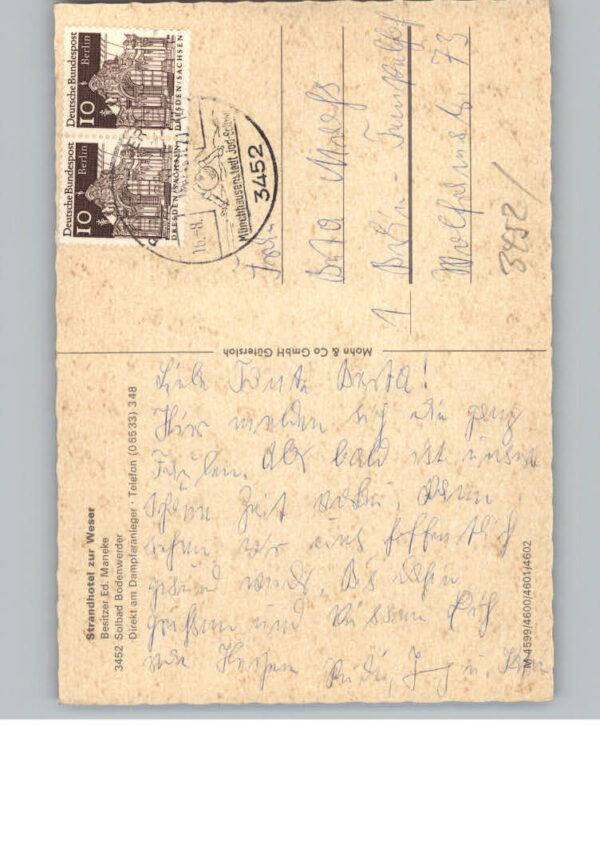 Strandhotel zur Weser
Besitzer Ed. Maneke
3452 Solbad Bodenwerder
Direkt am Dampferanleger · Telefon (05533) 348
Liebe Tante Berta!
Hier melden sich die ganz
Faulen. Aber bald ist unsere
schöne Zeit vorbei, dann
sehen wir uns hoffentlich
gesund wieder. Bis dahin
grüßen und küssen Dich
von Herzen
Rudi, u.
M-4599/4600/4601/4602
Mohn & Co GmbH Gütersloh
Deutsche Bundespost
Berlin
10
DRESDEN/SACHSEN
Deutsche Bundespost
Berlin
10
DRESDEN/SACHSEN
16.-8.
Münchhausenstadt
3452
Frau
Berta
1 Berlin -
73
3452/